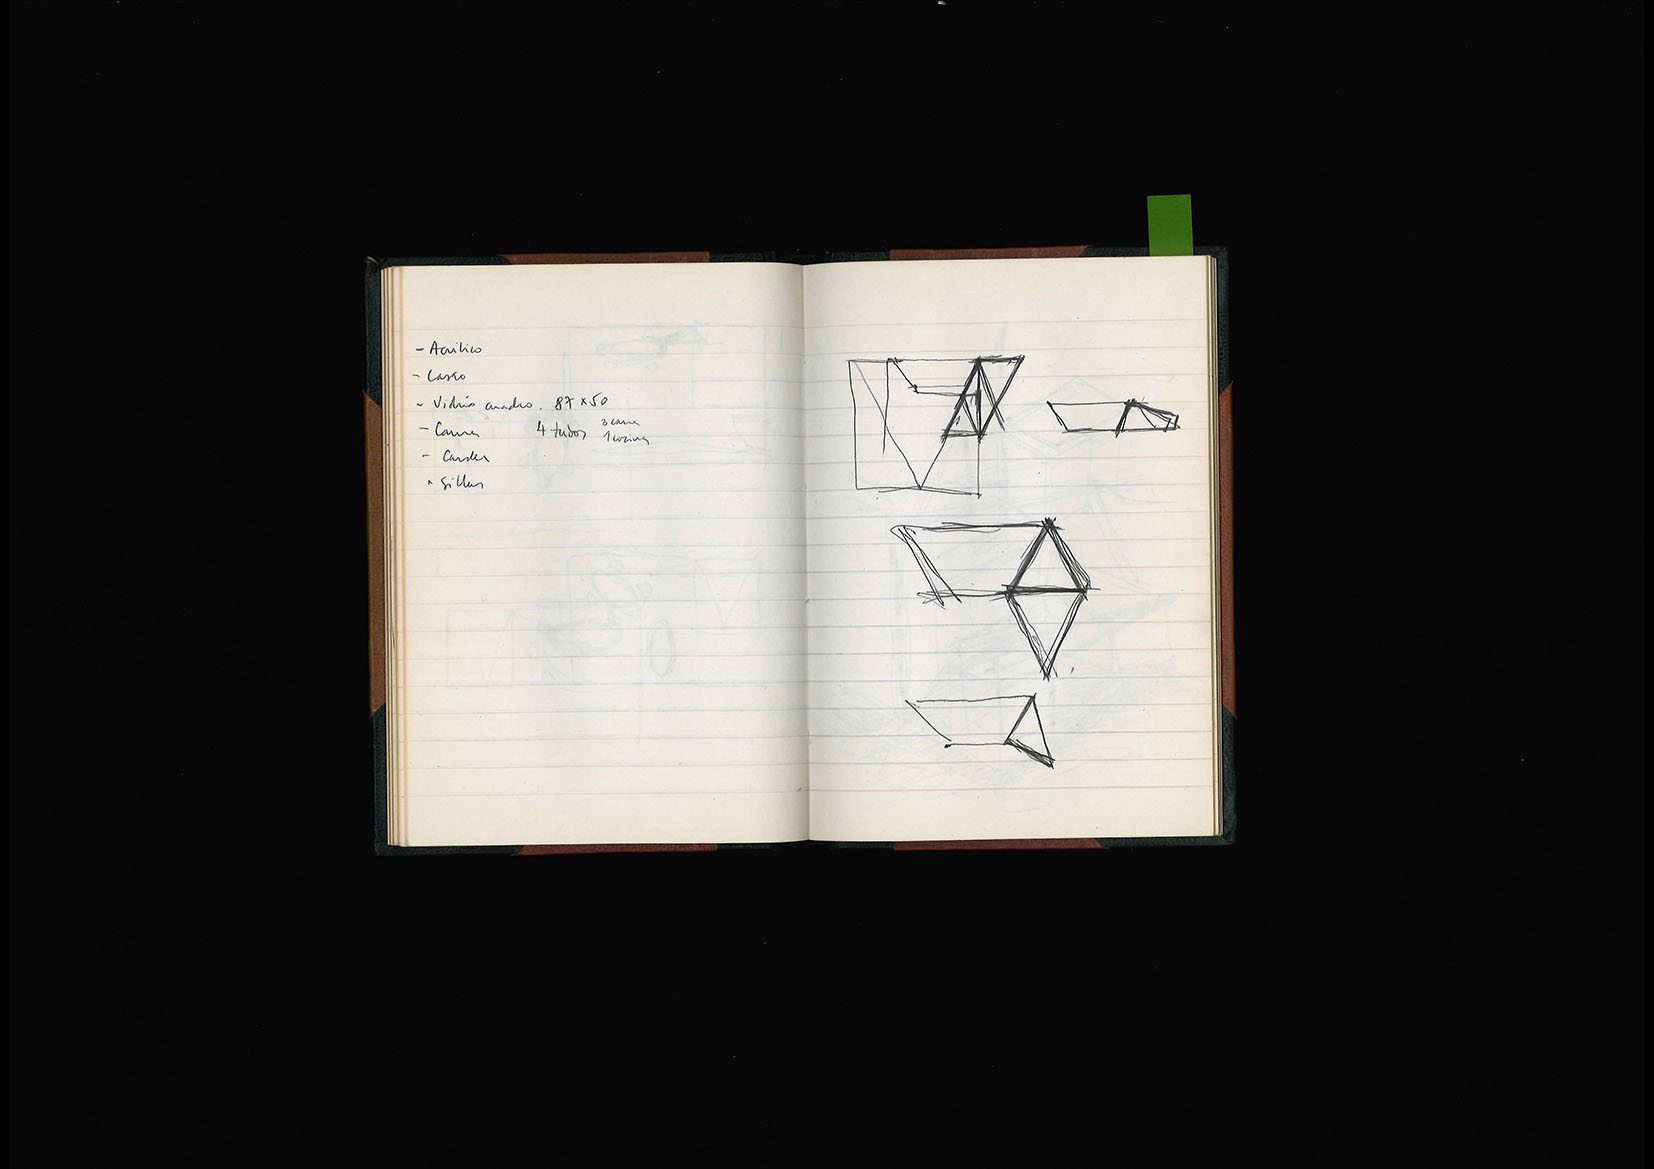 - Acrílico
- Casco
- Vidrio cuadro. 87 x 50
- Camas 4 tubos 3 cama
1 cocina
- 
- Sillas